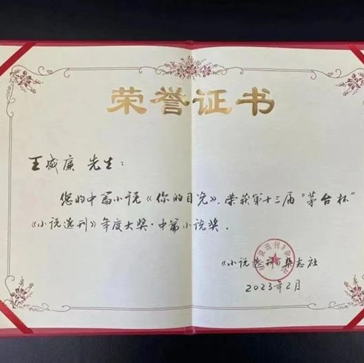 荣誉证书
王威廉 先生：
您的中篇小说《你的目光》，荣获第十三届"茅台杯"
《小说选刊》年度大奖·中篇小说奖．
《小说选刊》杂志社
2023年2月